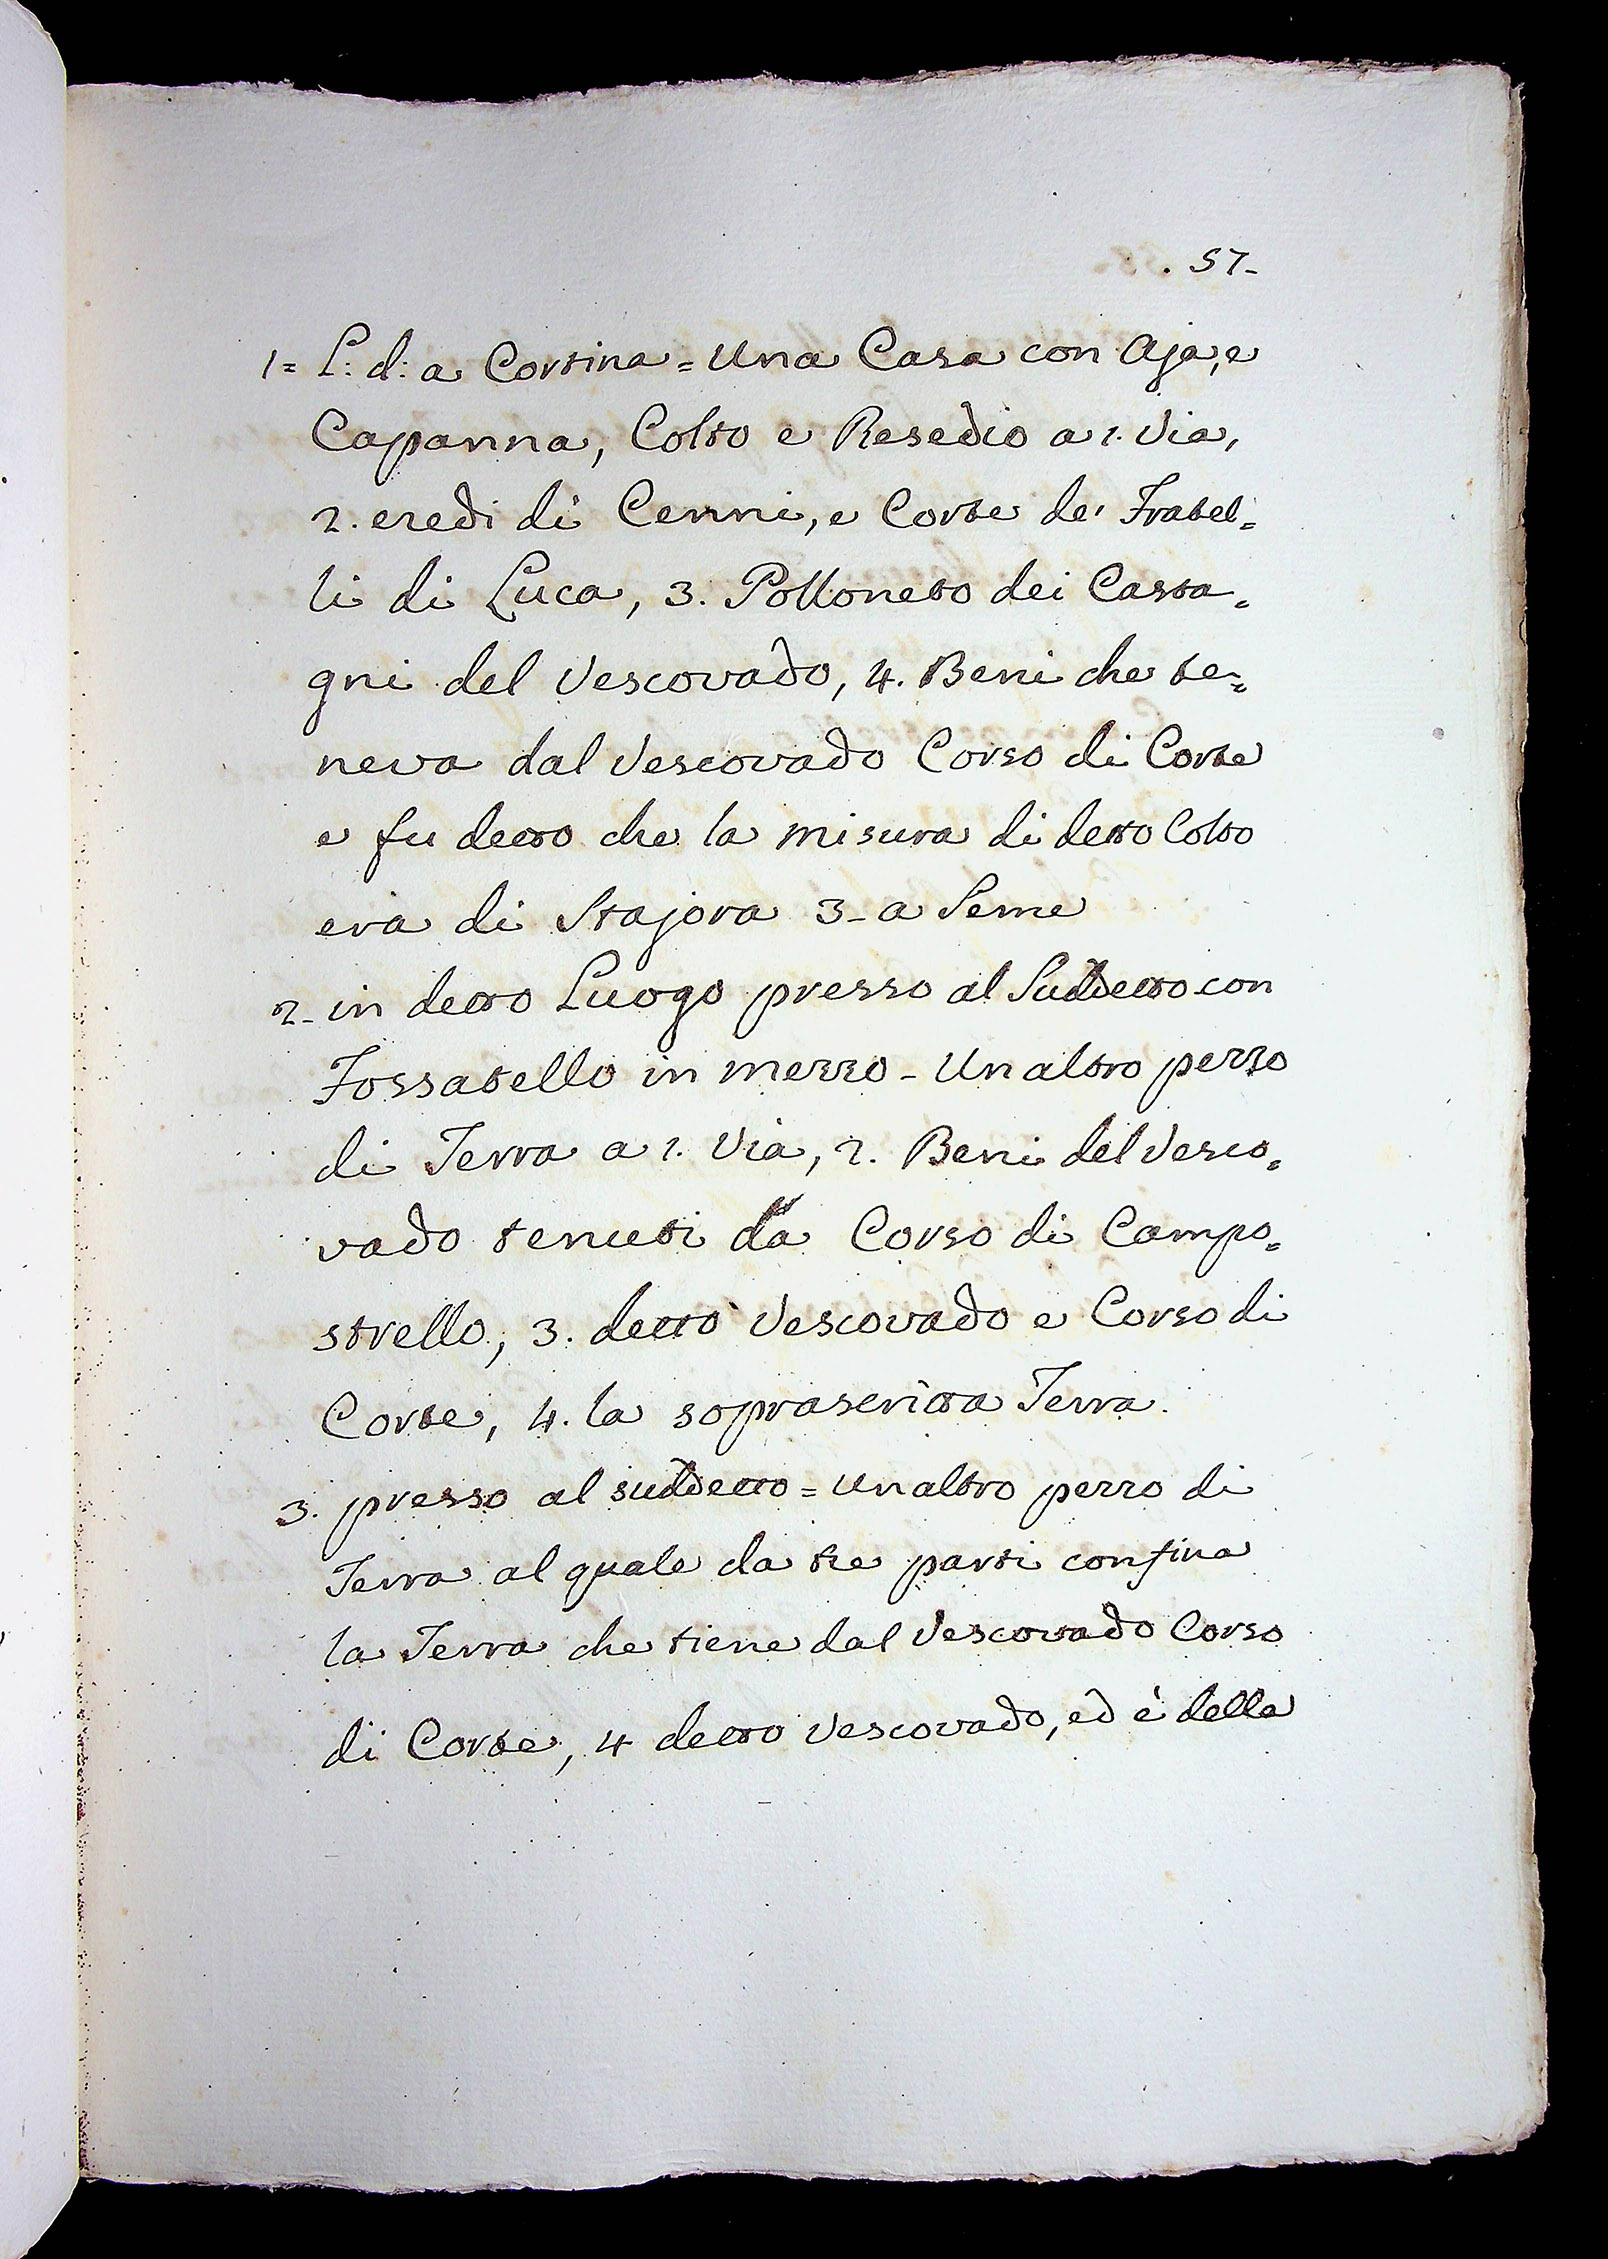 . 57-
1= L: d: a Cortina = Una Casa con Aja, e
Capanna, Colto e Resedio a 1. Via,
2. eredi di Cenni, e Corte de' Fratel=
li di Luca, 3. Polloneto dei Casta=
gni del Vescovado, 4. Beni che te=
neva dal Vescovado Corso di Corte
e fu detto che la misura di detto Colto
era di Stajora 3- a Seme
2- in detto Luogo presso al Suddetto con
Fossatello in mezzo - Un altro pezzo
di Terra a 1. Via, 2. Beni del Vesco=
vado tenuti da Corso di Campo=
strello, 3. detto Vescovado e Corso di
Corte, 4. la soprascritta Terra.
3. presso al suddetto = Un altro pezzo di
Terra al quale da tre parti confina
la Terra che tiene dal Vescovado Corso
di Corte, 4 detto Vescovado, ed è della